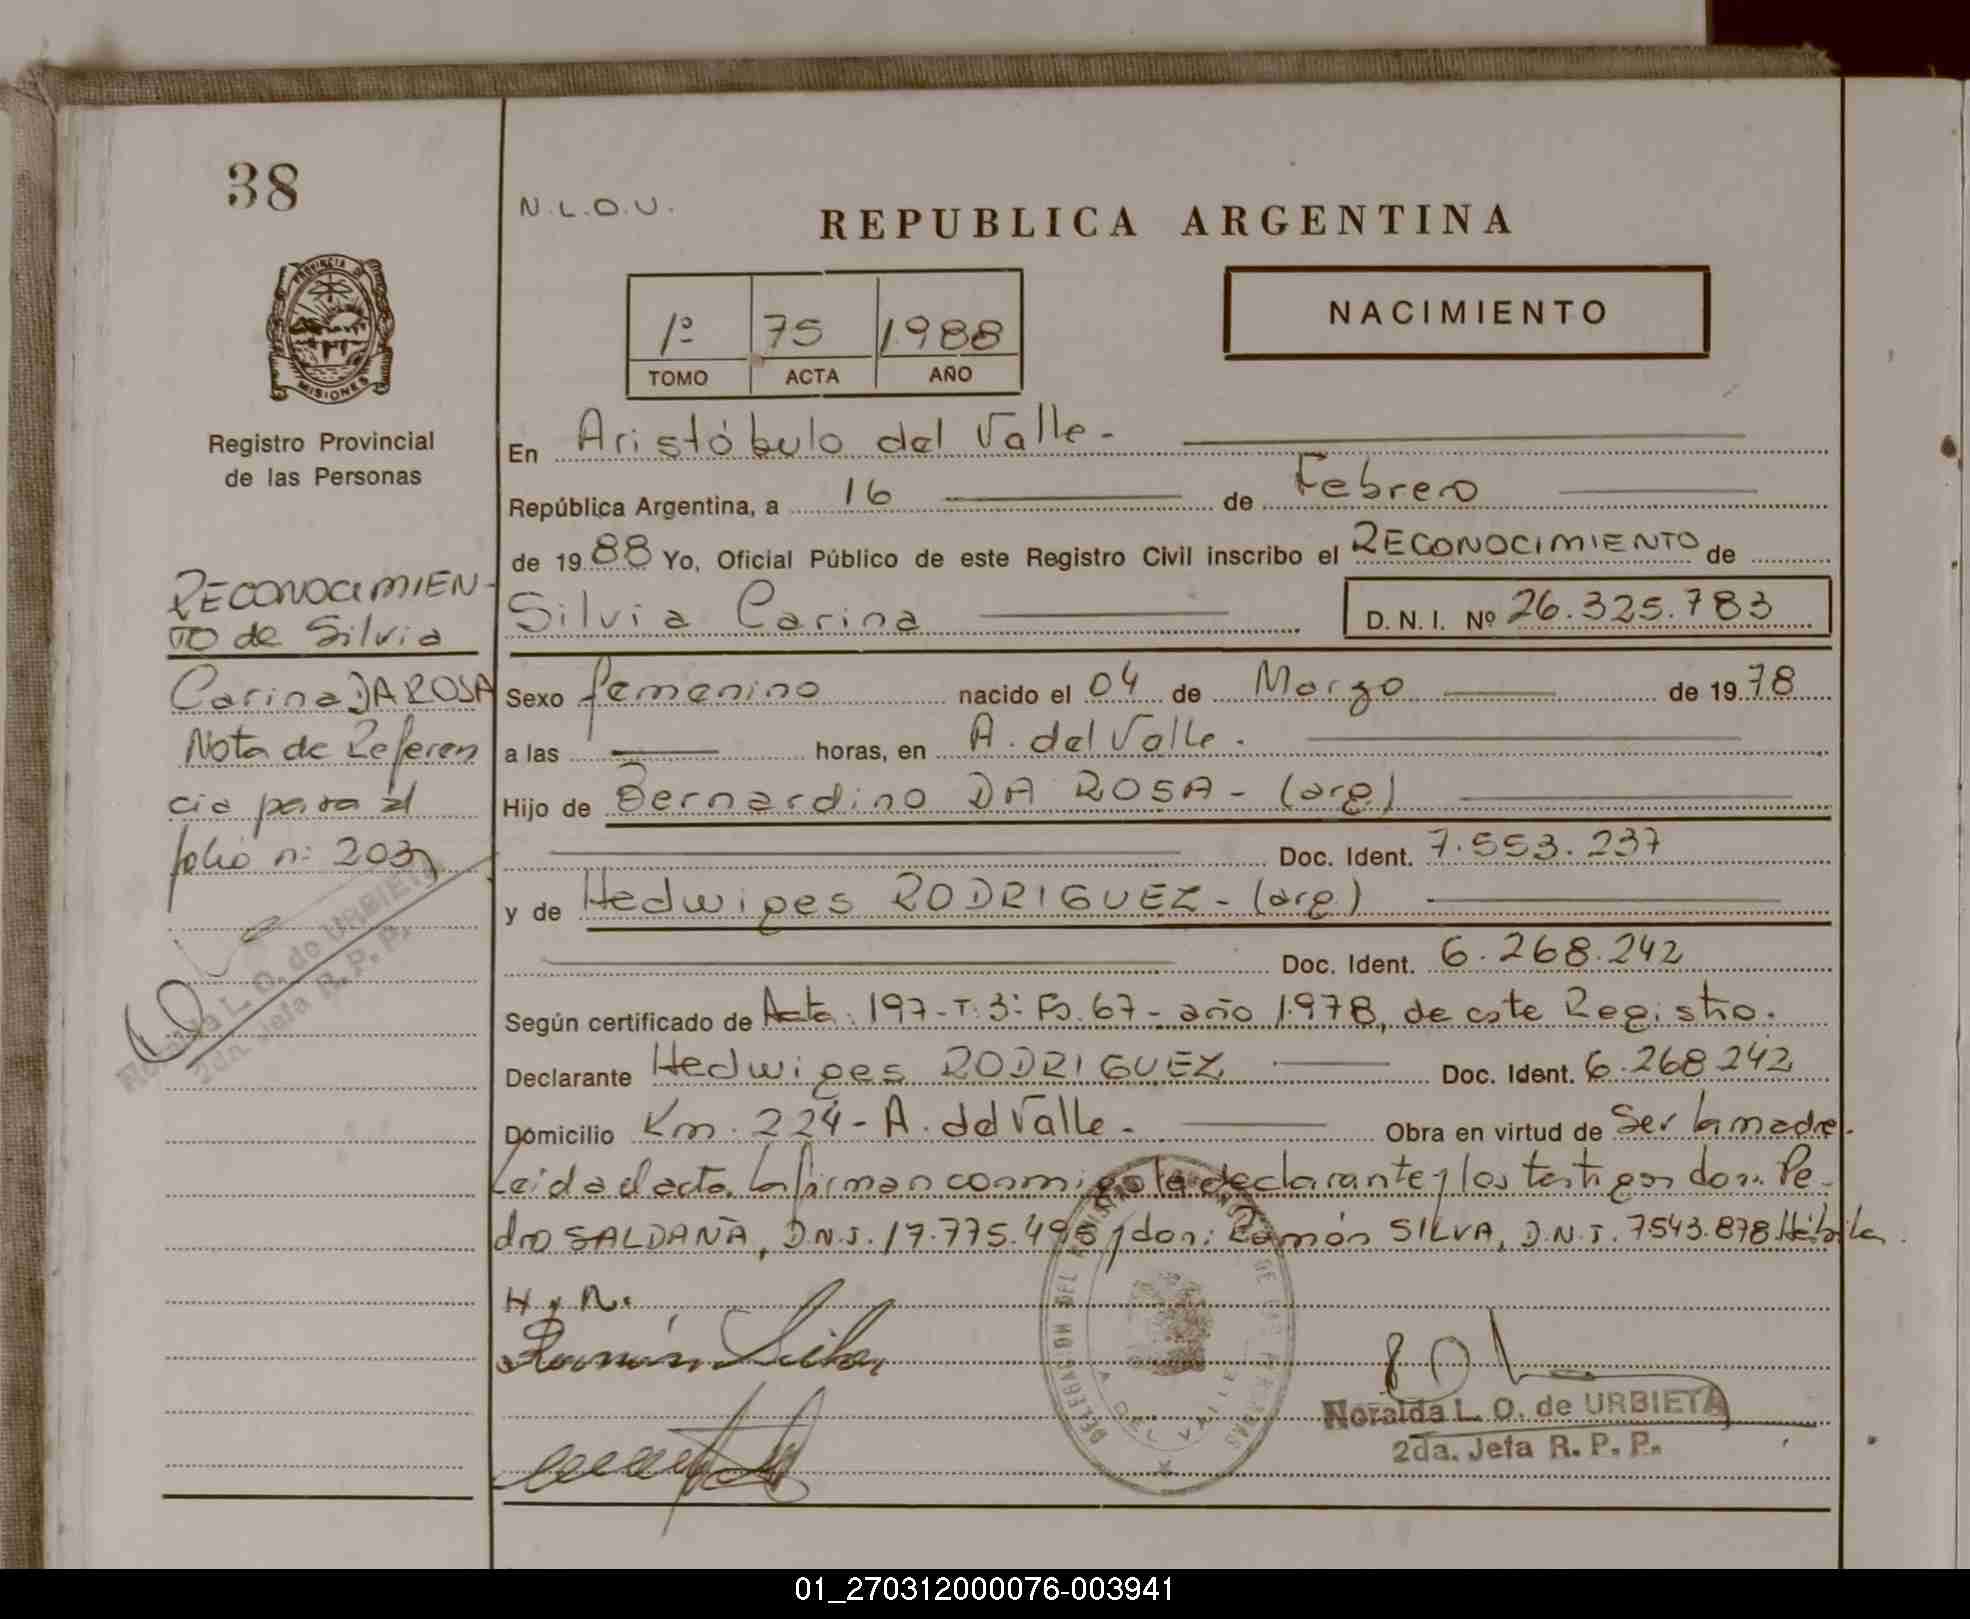 38
N.L.O.U.
REPUBLICA ARGENTINA
PROVINCIA DE
MISIONES
Registro Provincial
de las Personas
1º 75 1988
TOMO ACTA AÑO
NACIMIENTO
RECONOCIMIEN-
TO de Silvia
Carina DA ROSA
Nota de Referen
cia para el
folio nº 203
Noralda L. O. de URBIETA
2da. Jefa R. P. P.
En Aristóbulo del Valle-
República Argentina, a 16 de Febrero
de 1988 Yo, Oficial Público de este Registro Civil inscribo el RECONOCIMIENTO de
Silvia Carina D. N. I. Nº 26.325.783
Sexo femenino nacido el 04 de Marzo de 1978
a las horas, en A. del Valle.
Hijo de Bernardino DA ROSA- (arg)
Doc. Ident. 7.553.237
y de Hedwiges RODRIGUEZ- (arg)
Doc. Ident. 6.268.242
Según certificado de Acta: 197-T.3º Fo. 67- año 1.978, de este Registro.
Declarante Hedwiges RODRIGUEZ Doc. Ident. 6.268.242
Domicilio Km. 224- A. del Valle. Obra en virtud de Ser la madre.
Leida el acta, la firman conmigo la declarante y los testigos don: Pe-
dro SALDAÑA, D.N.I. 17.775.495 y don: Ramón SILVA, D.N.I. 7.543.878
Ramón Silva
DELEGACION DEL
DE LAS PERSONAS
A. DEL VALLE
Noralda L. O. de URBIETA
2da. Jefa R. P. P.
01_270312000076-003941